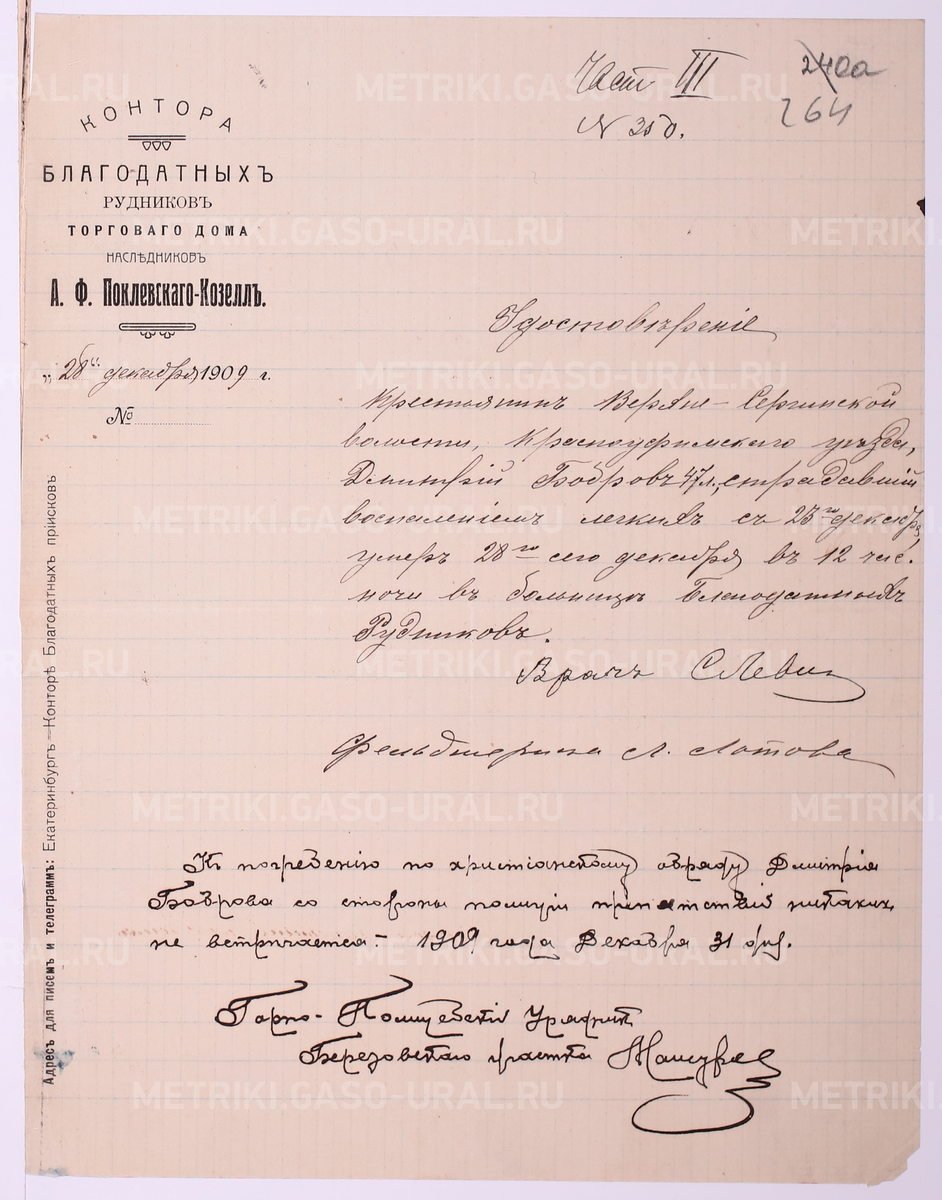 Част III
N 350.
240а
264
КОНТОРА
БЛАГОДАТНЫХЪ
РУДНИКОВЪ
ТОРГОВАГО ДОМА
НАСЛѢДНИКОВЪ
А. Ф. Поклевскаго-Козеллъ.
„28“ декабря 1909 г.
№
Удостовѣреніе
Крестьянинъ Верхне-Сергинской
волости, Красноуфимскаго уѣзда,
Дмитрій Бобровъ 47 л., страдавшій
воспаленіемъ легкихъ съ 23го декабря,
умеръ 28го сего декабря въ 12 час.
ночи въ больницѣ Благодатныхъ
Рудниковъ.
Врачъ С Леви
Фельдшерица Л. Лотова
Къ погребенію по христіанскому обряду Дмитрія
Боброва со стороны полиціи припятствій никакихъ
не встричается – 1909 года Декабря 31 дня.
Горно-Полицейскій Урядник
Березовскаго участка
Адресъ для писемъ и телеграммъ: Екатеринбургъ—Конторѣ Благодатныхъ пріисковъ
METRIKI.GASO-URAL.RU